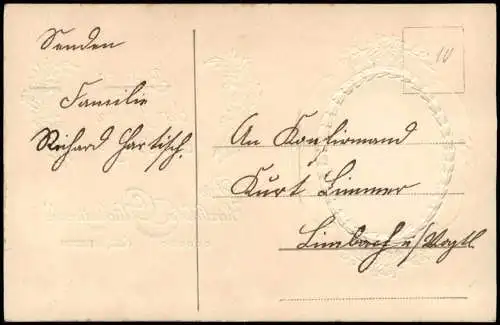 Senden
Familie
Richard Hartisch.
10
An Konfirmand
Kurt Limmer
Limbach i/Vogtl.